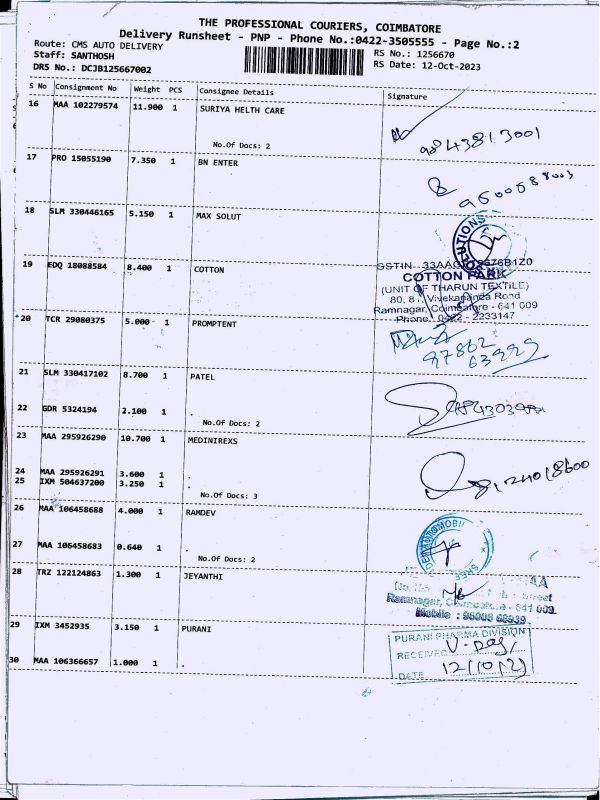 THE PROFESSIONAL COURIERS, COIMBATORE
Delivery Runsheet - PNP - Phone No.:0422-3505555 - Page No.:2
Route: CMS AUTO DELIVERY
RS No.: 1256670
Staff: SANTHOSH
RS Date: 12-Oct-2023
DRS No.: DCJB125667002
S No Consignment No Weight PCS Consignee Details Signature
16 MAA 102279574 11.900 1 SURIYA HELTH CARE
No.Of Docs: 2
9843813001
17 PRO 15055190 7.350 1 BN ENTER
18 SLM 330446165 5.150 1 MAX SOLUT
19 EDQ 18088584 8.400 1 COTTON
COTTON PARK
(UNIT OF THARUN TEXTILE)
Vivekananda Road
Ramnagar, Coimbatore - 641 009
Phone: 0422 - 2233147
20 TCR 29080375 5.000 1 PROMPTENT
97862
63999
21 SLM 330417102 8.700 1 PATEL
22 GDR 5324194 2.100 1 .
No.Of Docs: 2
23 MAA 295926290 10.700 1 MEDINIREXS
24 MAA 295926291 3.600 1 .
25 IXM 504637200 3.250 1 .
No.Of Docs: 3
8124018600
26 MAA 106458688 4.000 1 RAMDEV
27 MAA 106458683 0.640 1 .
No.Of Docs: 2
28 TRZ 122124863 1.300 1 JEYANTHI
Street
Ramnagar, Coimbatore - 641 009.
29 IXM 3452935 3.150 1 PURANI
PURANI PHARMA DIVISION
RECEIVED
DATE 12/10/23
30 MAA 106366657 1.000 1 .